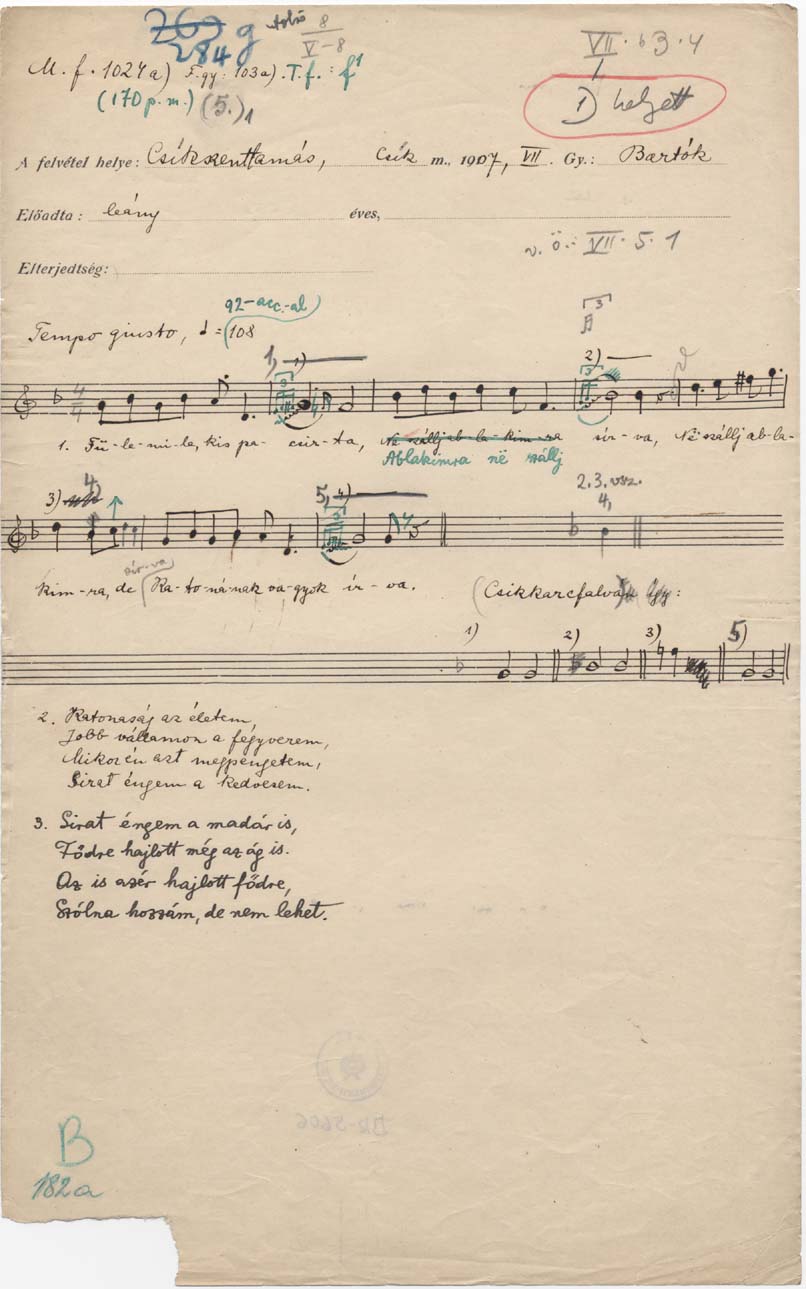 263 284 g alsó 8
V-8
VII. b 3. 4
M. f. 1024a) F. gy: 103a). T. f.: f¹
(170 p. m.) (5.)1
I) helyett
A felvétel helye: Csíkszenttamás, Csik m., 1907, VII. Gy.: Bartók
Előadta: leány éves,
v. ö.: VII. 5. 1
Elterjedtség:
92-acc.-al
Tempo giusto, ♩ = 108
3
1, 1) 2)
3 3
4/4
1. Fü-le-mi-le, kis pa-csir-ta, Ne szállj ab-la-kim-ra sír-va, Në szállj ab-la-
Ablakimra në szállj
3) 4, 5, 4) 2.3. vsz.
3 4,
sír-va
kim-ra, de Ka-to-nának va-gyok ír-va. (Csikkarcfalván így:
1) 2) 3) 5)
2. Katonaság az életem,
Jobb vállamon a fegyverem,
Mikor én azt megpengetem,
Sirat éngem a kedvesem.
3. Sirat éngem a madár is,
Fődre hajlott még az ág is.
Az is azér hajlott fődre,
Szólna hozzám, de nem lehet.
BR-5606
B
182a